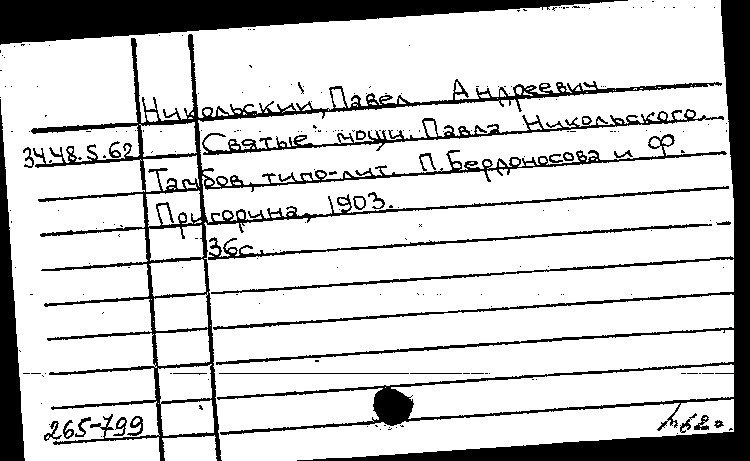 Никольский, Павел Андреевич
34.48.5.62 Святые мощи. Павла Никольского.
Тамбов, типо-лит. П. Бердоносова и Ф.
Пригорина, 1903.
36с.
265-799